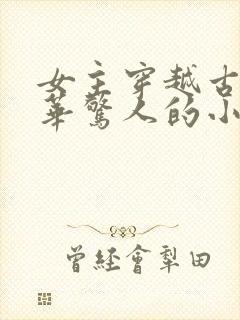 女主穿越古
華驚人的小
曾經會犁田